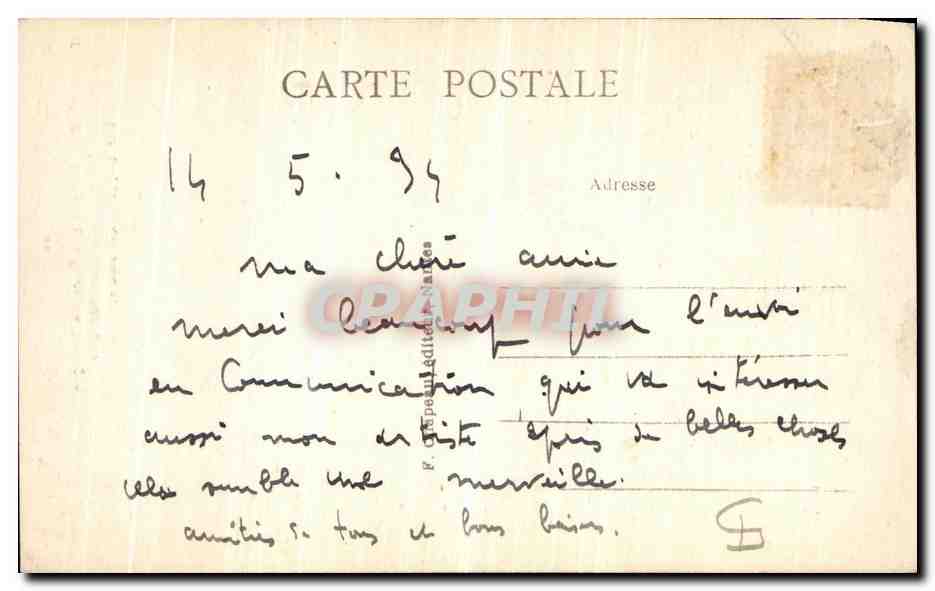 CARTE POSTALE
14 5. 34
Adresse
ma chère amie
merci beaucoup pour l'envoi
en Communication qui va intéresser
aussi mon artiste épris de belles choses
cela semble une merveille.
amitiés de tous et bons baisers.
F. Chapeau, éditeur, Nantes
CPAPHIL